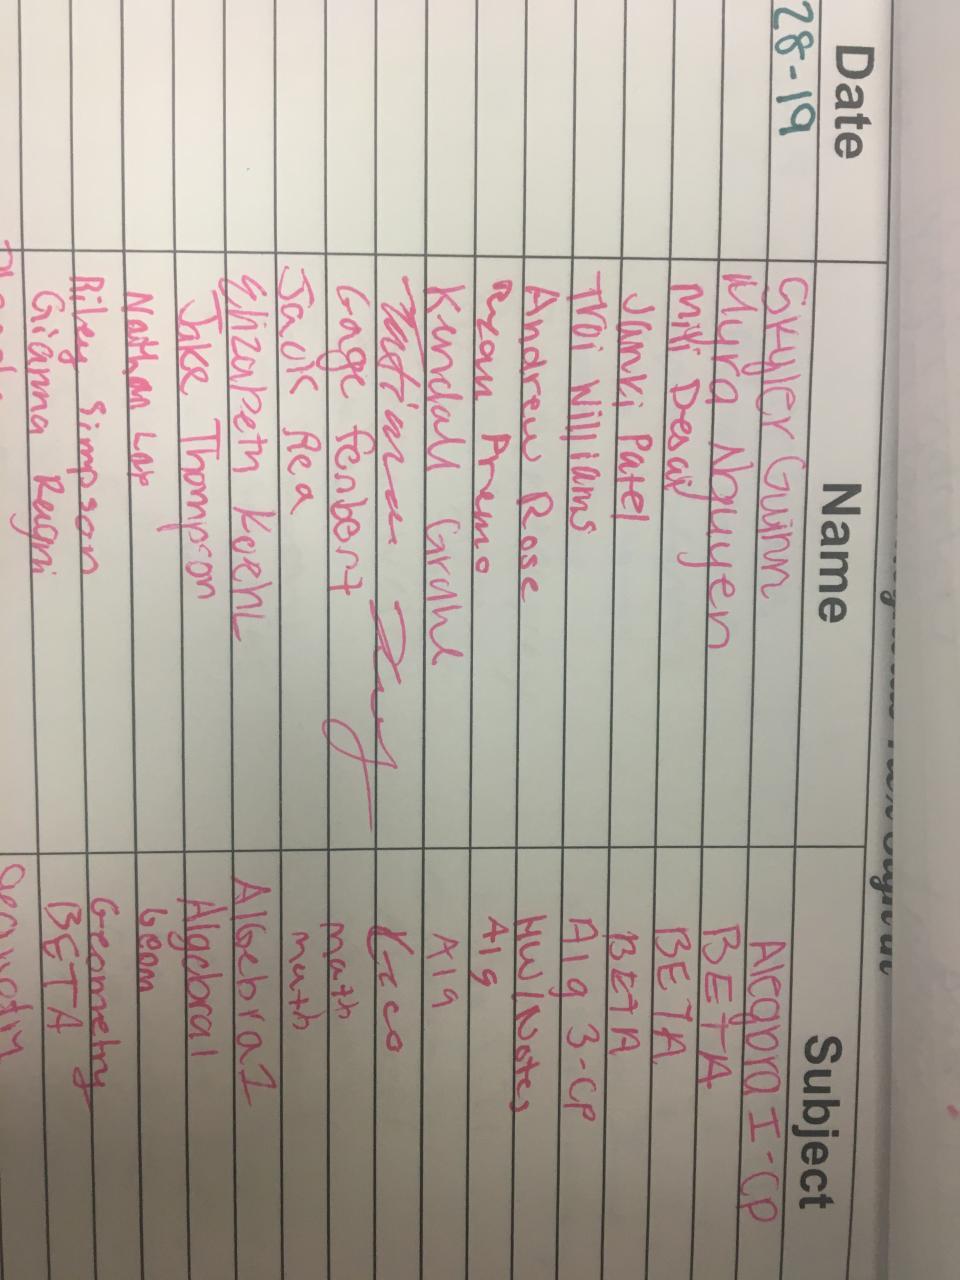 Date Name Subject
28-19 Skyler Guinn Alegbra I-CP
Myra Nguyen BETA
Miki Desai BETA
Janki Patel BETA
Troi Williams Alg 3-CP
Andrew Rose HW/Notes
Ryan Alg
Kendall Grahl Alg
Gage Fenbert math
Jack Rea math
Elizabeth Koehl Algebra 1
Jake Thompson Algebra 1
Nathan Geom
Riley Simpson Geometry
Gianna BETA